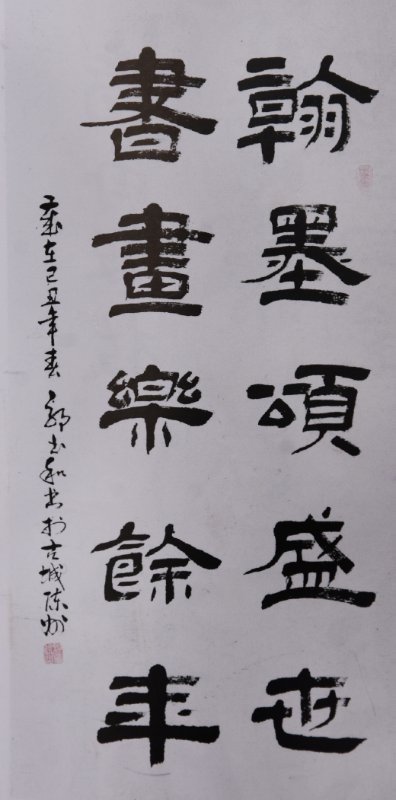 翰墨頌盛世
書畫樂餘年
歲在己丑年春郭書和書於古城陳州